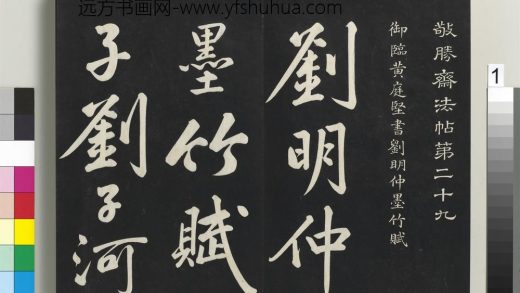 远方书画网-www.yfshuhua.com
敬勝齋法帖第二十九
御臨黃庭堅書劉明仲墨竹賦
劉明仲
墨竹賦
子劉子河
1